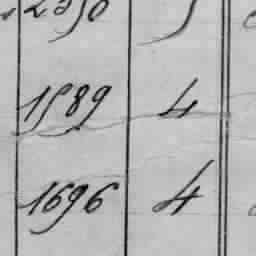 1589 4
1696 4